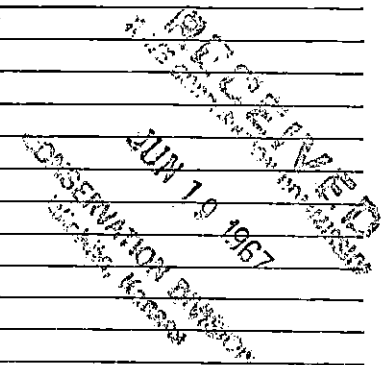 RECEIVED
STATE CORPORATION COMMISSION
JUN 19 1967
CONSERVATION DIVISION
Wichita, Kansas